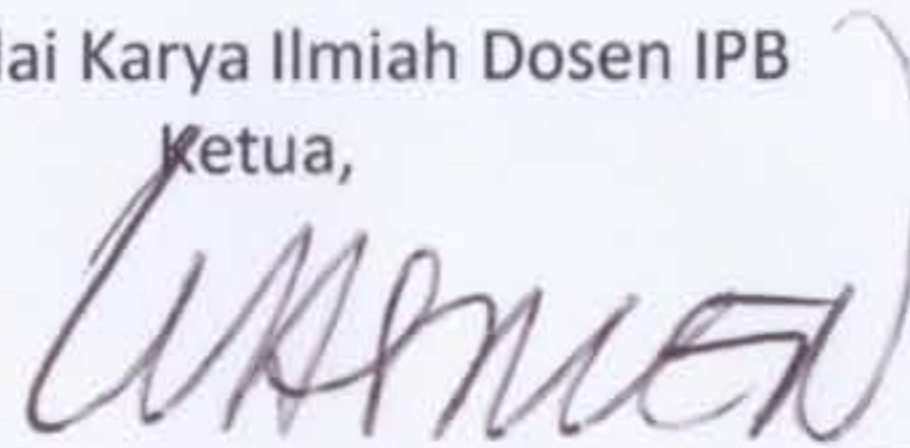 lai Karya Ilmiah Dosen IPB
Ketua,